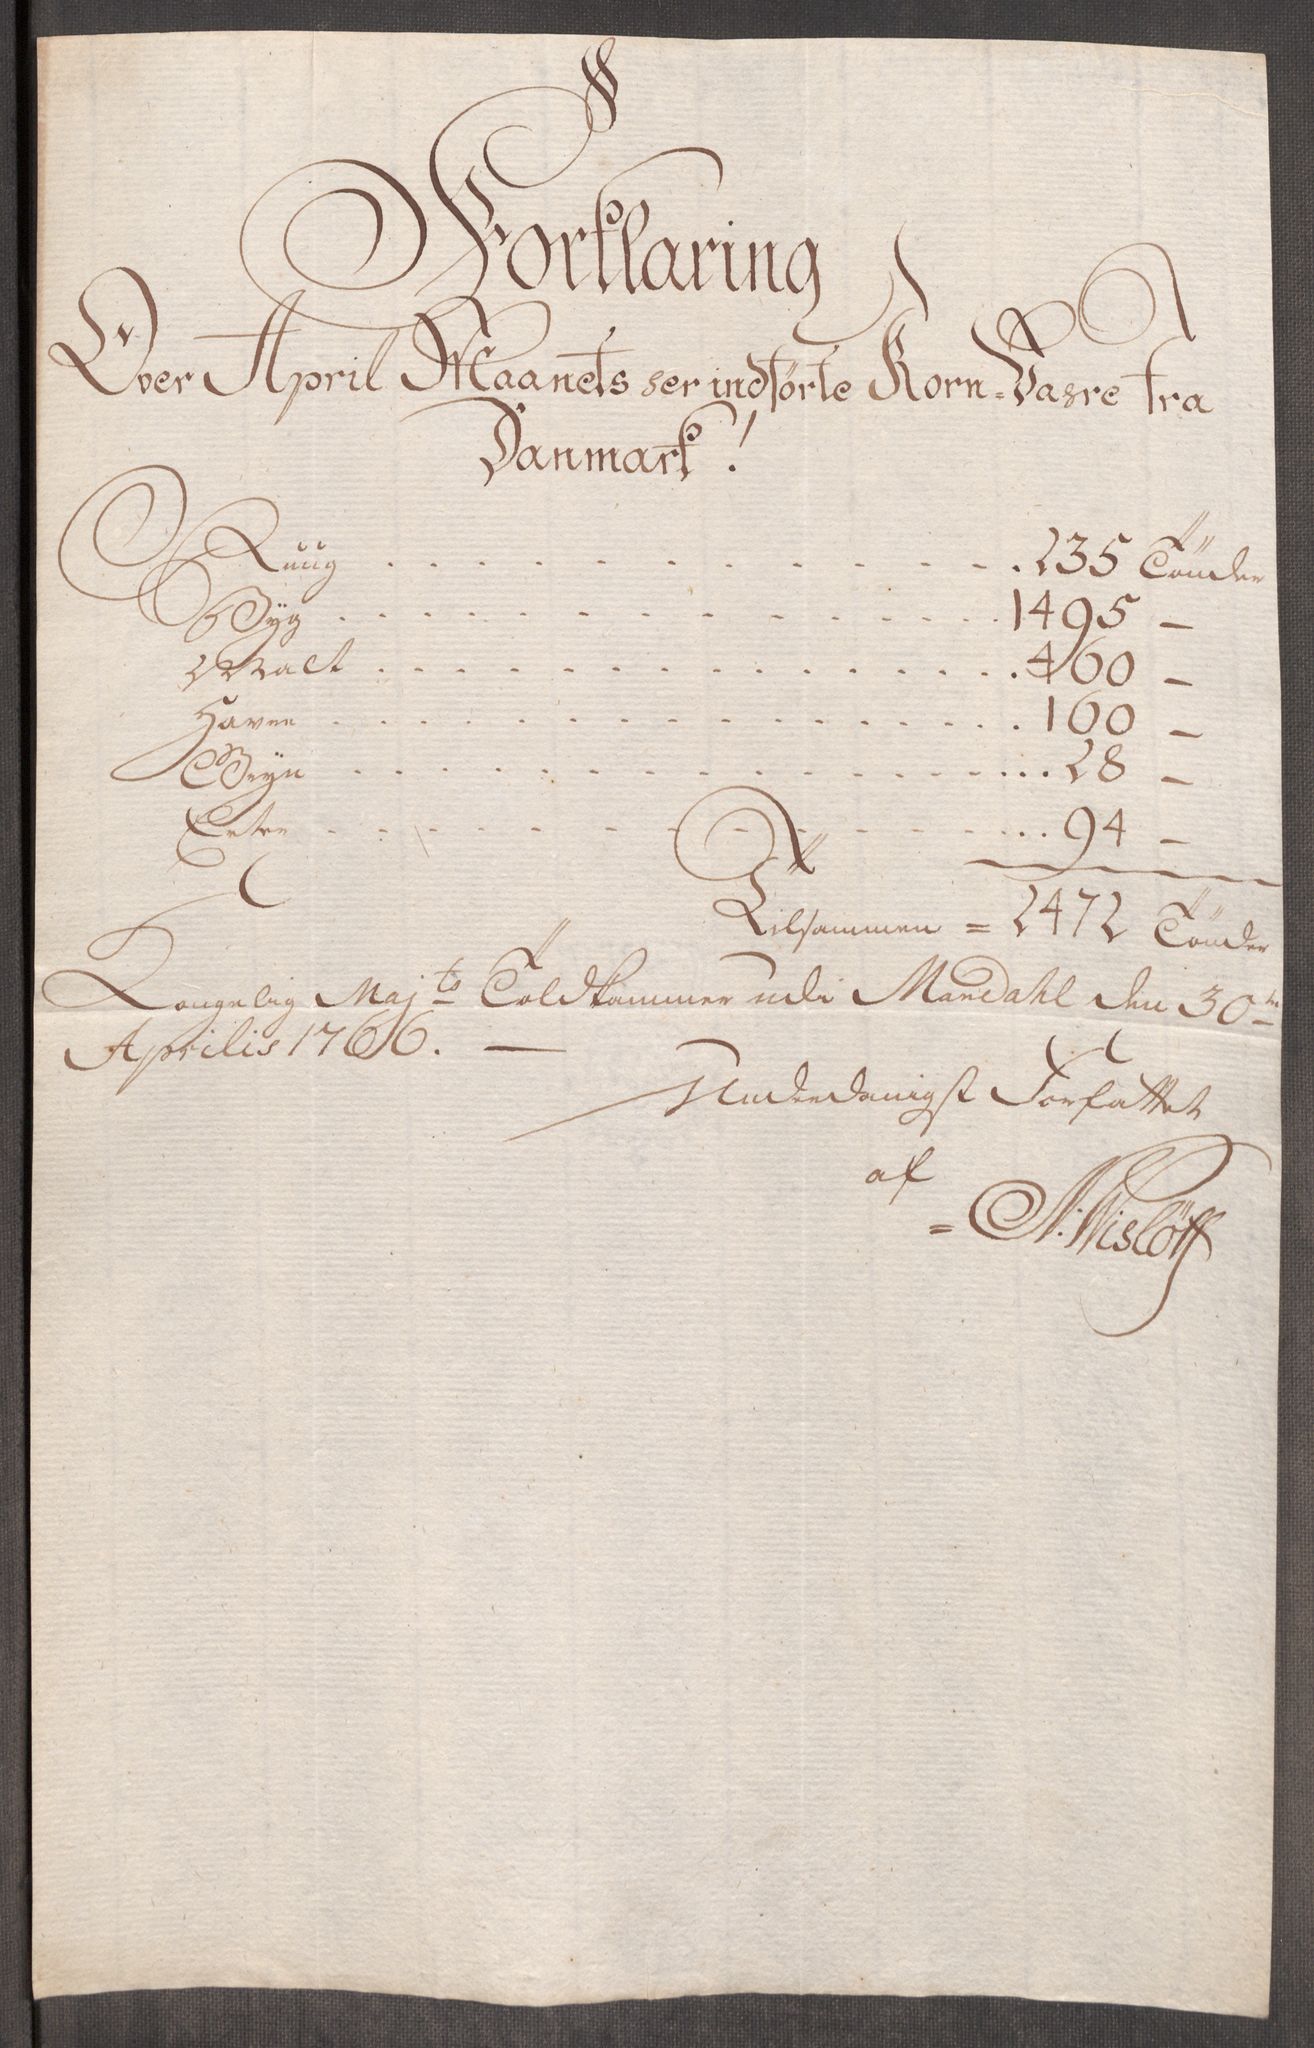 Forklaring
Over April Maanets her indførte Korn-Vahre fra
Danmark!
Ruug . . . . . . . . . . . . . . . 235 Tönder
Byg . . . . . . . . . . . . . . . 1495 —
Malt . . . . . . . . . . . . . . . 460 —
Havre . . . . . . . . . . . . . . . 160 —
Gryn . . . . . . . . . . . . . . . 28 —
Erter . . . . . . . . . . . . . . . 94 —
Tilsammen = 2472 Tönder
Kongelig Majts Toldkammer udi Mandahl den 30te
Aprilis 1766. —
Underdanigst Forfattet
af
= N: Wislöff